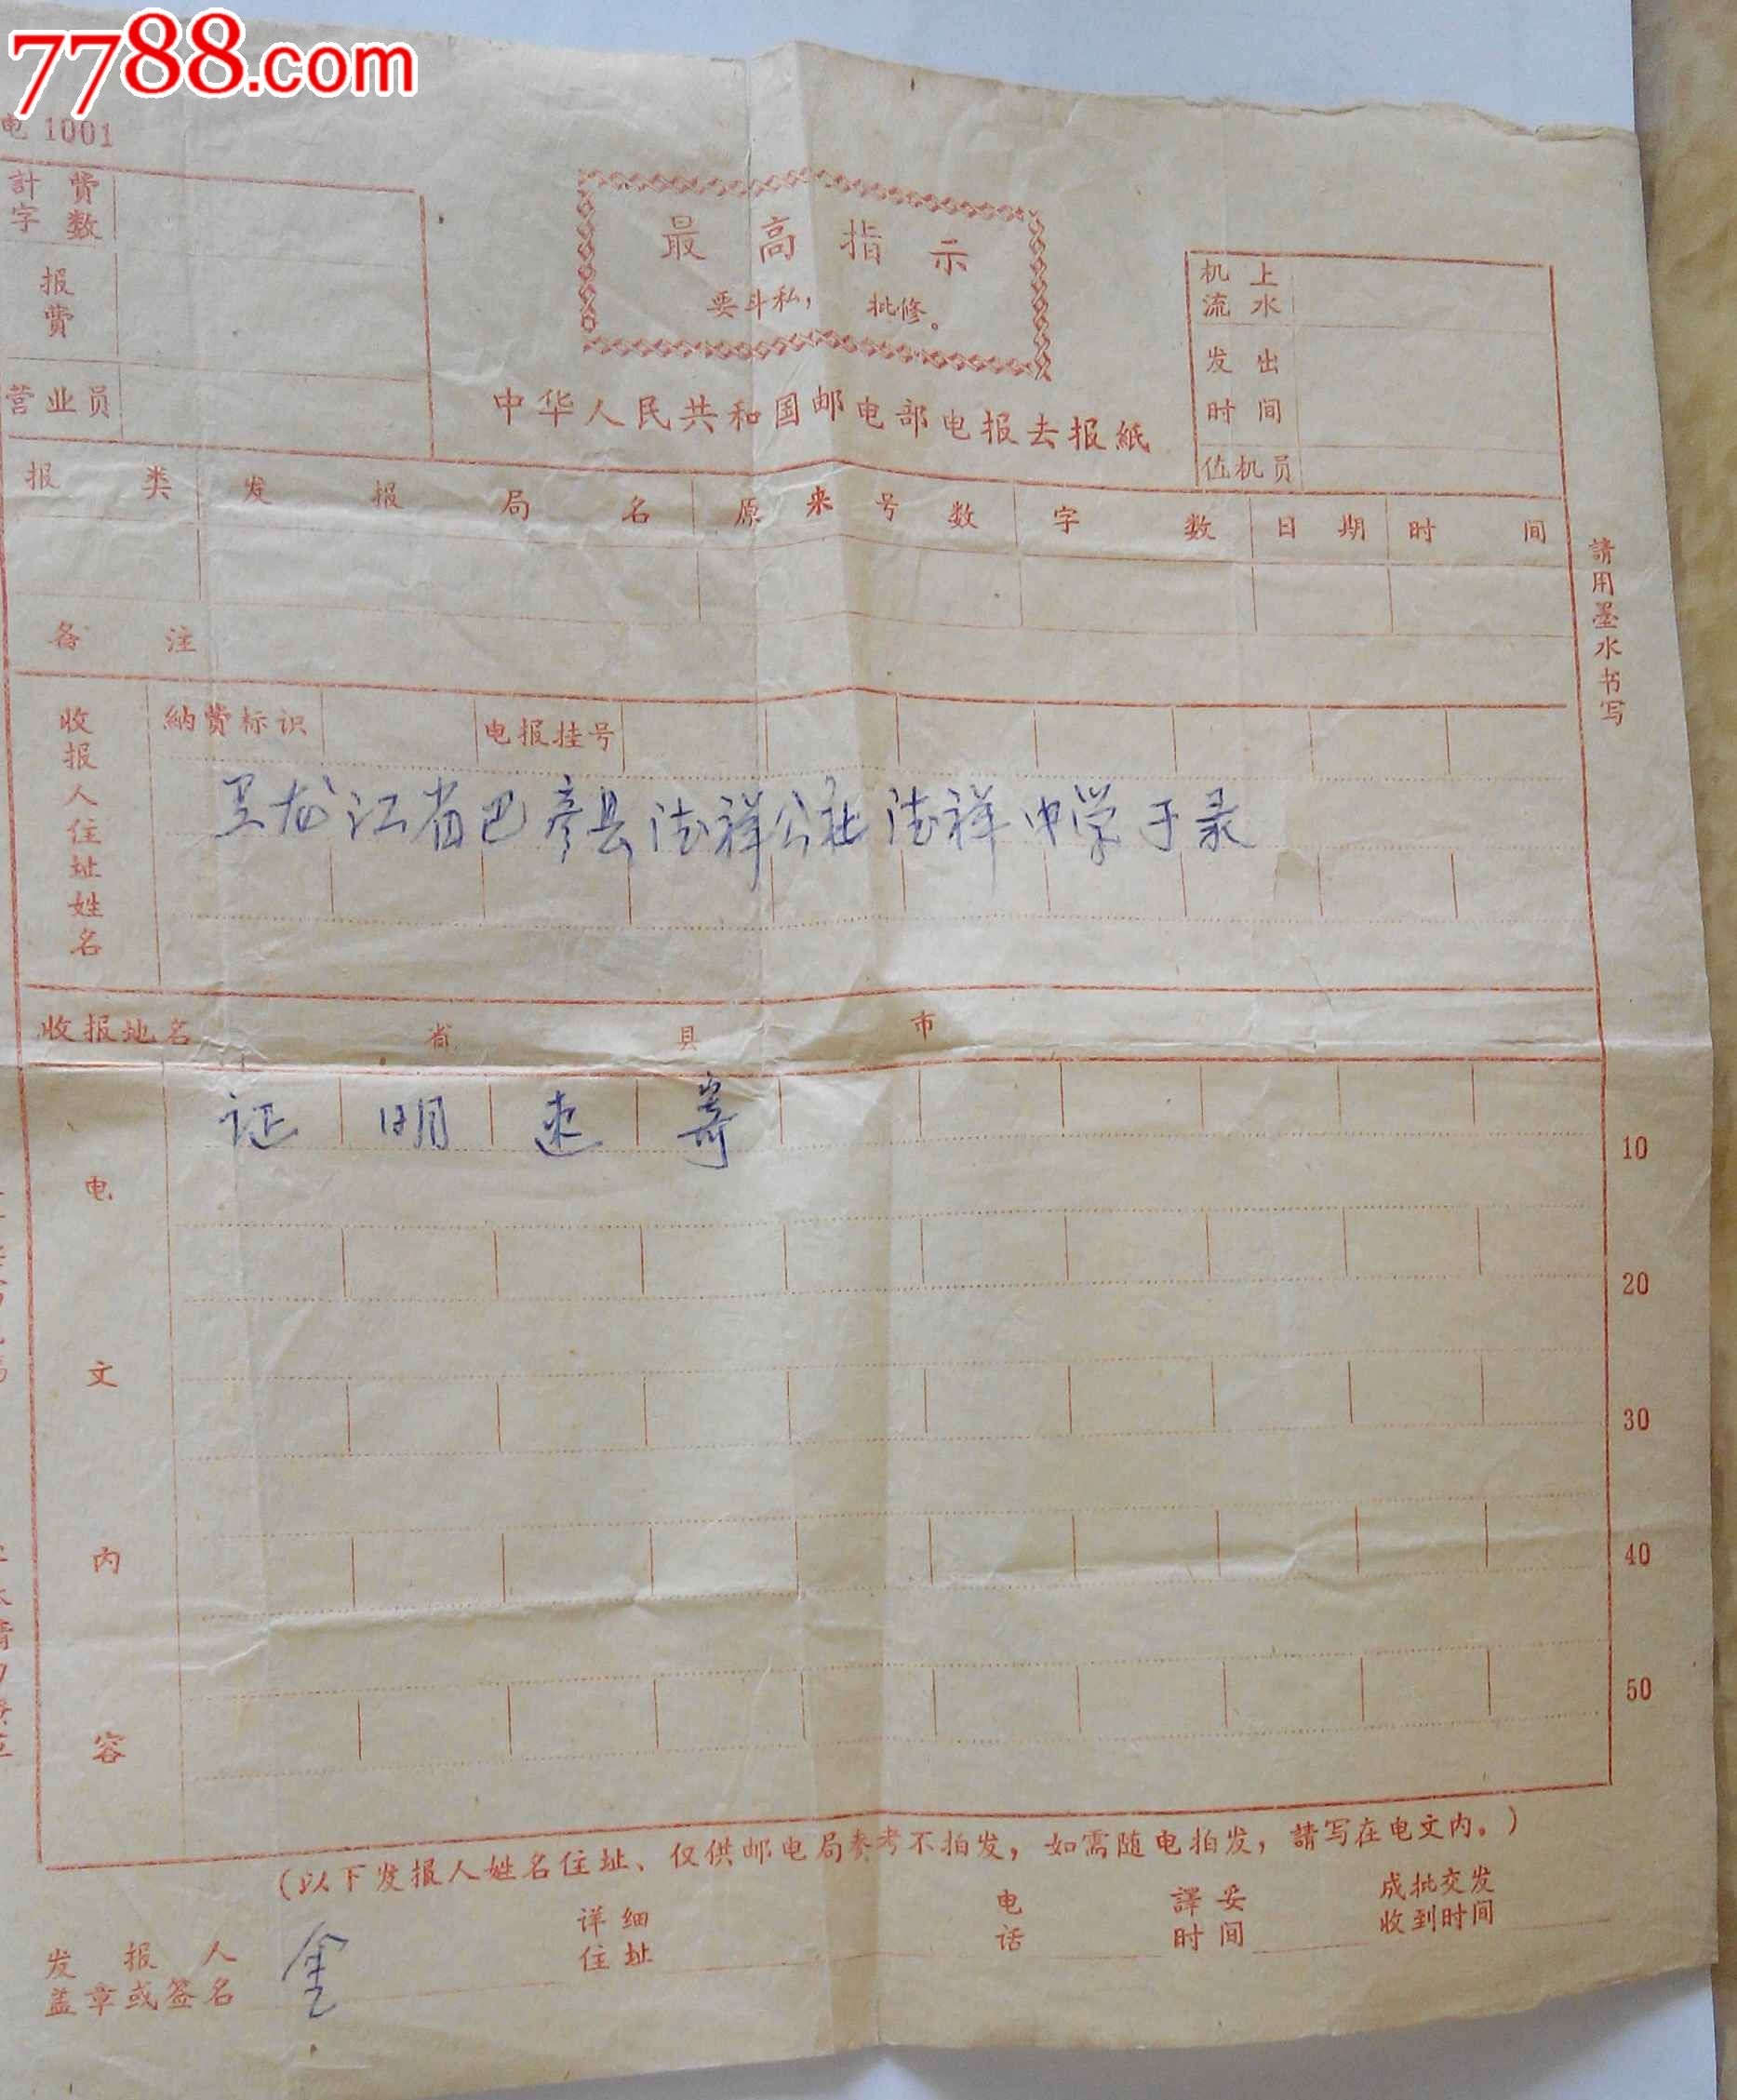 7788.com
电 1001
計費
字数
报費
营业员
最高指示
要斗私， 批修。
中华人民共和国邮电部电报去报紙
机上
流水
发出
时间
值机员
报类 发报局名 原来号数 字数 日期 时间
备注
請用墨水书写
收报人住址姓名
納费标识 电报挂号
黑龙江省巴彦县德祥公社德祥中学于录
收报地名 省 县 市
电文内容
证明速寄
10
20
30
40
50
(以下发报人姓名住址、仅供邮电局参考不拍发，如需随电拍发，請写在电文内。)
发报人
盖章或签名
金
详细
住址
电话
譯妥
时间
成批交发
收到时间